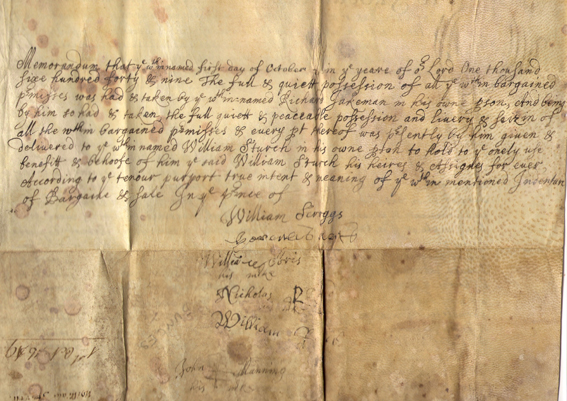 Memorandum that ye wthnamed first day of October in ye yeare of or Lord One thousand
sixe hundred forty & nine The full & quiett possession of all ye wthin bargained
pmisses was had & taken by ye wthinnamed Richard Jakeman in his owne pson, And being
by him so had & taken, the full quiett & peaceable possession and livery & seizen of
all the wthin bargained pmisses & every pt thereof was psently by him given &
delivered to ye wthinnamed William Sturch in his owne pson to hold to ye onely use
benefitt & behoofe of him ye said William Sturch his heires & Assignes for ever
According to ye tenour purport true intent & meaning of ye wthin mentioned Indenture
of Bargaine & sale In ye psence of
William Scriggs
his marke
Nicholas R
William
John Manning
his